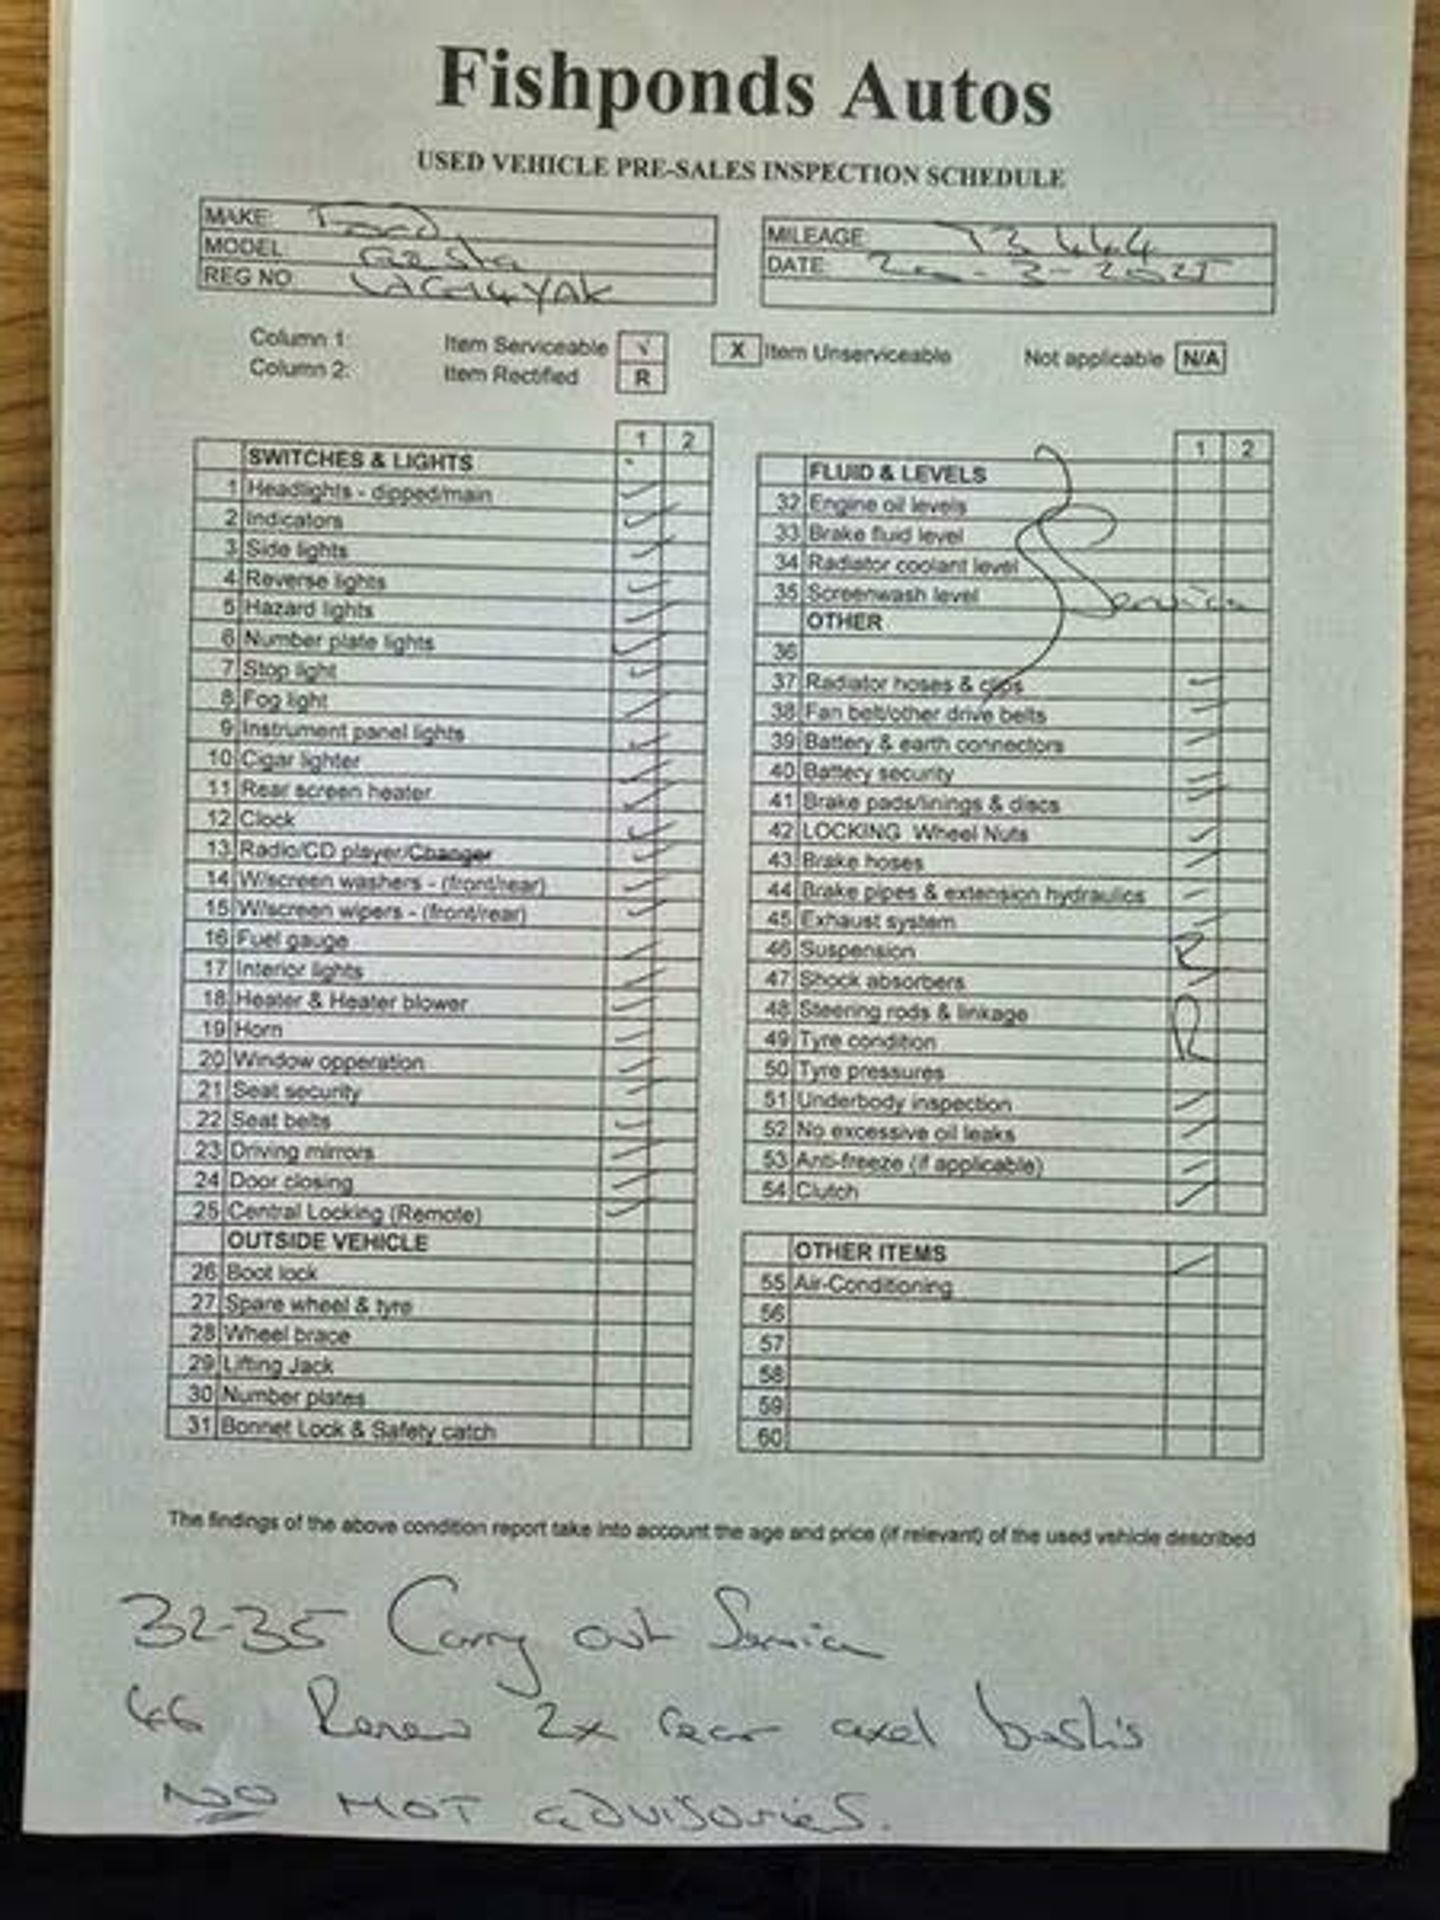 Fishponds Autos
USED VEHICLE PRE-SALES INSPECTION SCHEDULE
MAKE: Ford
MODEL: Fiesta
REG NO:
MILEAGE: 73444
DATE: 20-3-2025
Column 1: Item Serviceable √ X Item Unserviceable Not applicable N/A
Column 2: Item Rectified R
1 2
SWITCHES & LIGHTS
1 Headlights - dipped/main
2 Indicators
3 Side lights
4 Reverse lights
5 Hazard lights
6 Number plate lights
7 Stop light
8 Fog light
9 Instrument panel lights
10 Cigar lighter
11 Rear screen heater
12 Clock
13 Radio/CD player/Changer
14 W/screen washers - (front/rear)
15 W/screen wipers - (front/rear)
16 Fuel gauge
17 Interior lights
18 Heater & Heater blower
19 Horn
20 Window opperation
21 Seat security
22 Seat belts
23 Driving mirrors
24 Door closing
25 Central Locking (Remote)
OUTSIDE VEHICLE
26 Boot lock
27 Spare wheel & tyre
28 Wheel brace
29 Lifting Jack
30 Number plates
31 Bonnet Lock & Safety catch
1 2
FLUID & LEVELS
32 Engine oil levels
33 Brake fluid level
34 Radiator coolant level
35 Screenwash level
Service
OTHER
36
37 Radiator hoses & clips
38 Fan belt/other drive belts
39 Battery & earth connectors
40 Battery security
41 Brake pads/linings & discs
42 LOCKING Wheel Nuts
43 Brake hoses
44 Brake pipes & extension hydraulics
45 Exhaust system
46 Suspension R
47 Shock absorbers
48 Steering rods & linkage
49 Tyre condition R
50 Tyre pressures
51 Underbody inspection
52 No excessive oil leaks
53 Anti-freeze (if applicable)
54 Clutch
OTHER ITEMS
55 Air-Conditioning
56
57
58
59
60
The findings of the above condition report take into account the age and price (if relevant) of the used vehicle described
32-35 Carry out Service
46 Renew 2x rear axel bushis
NO MOT advisories.